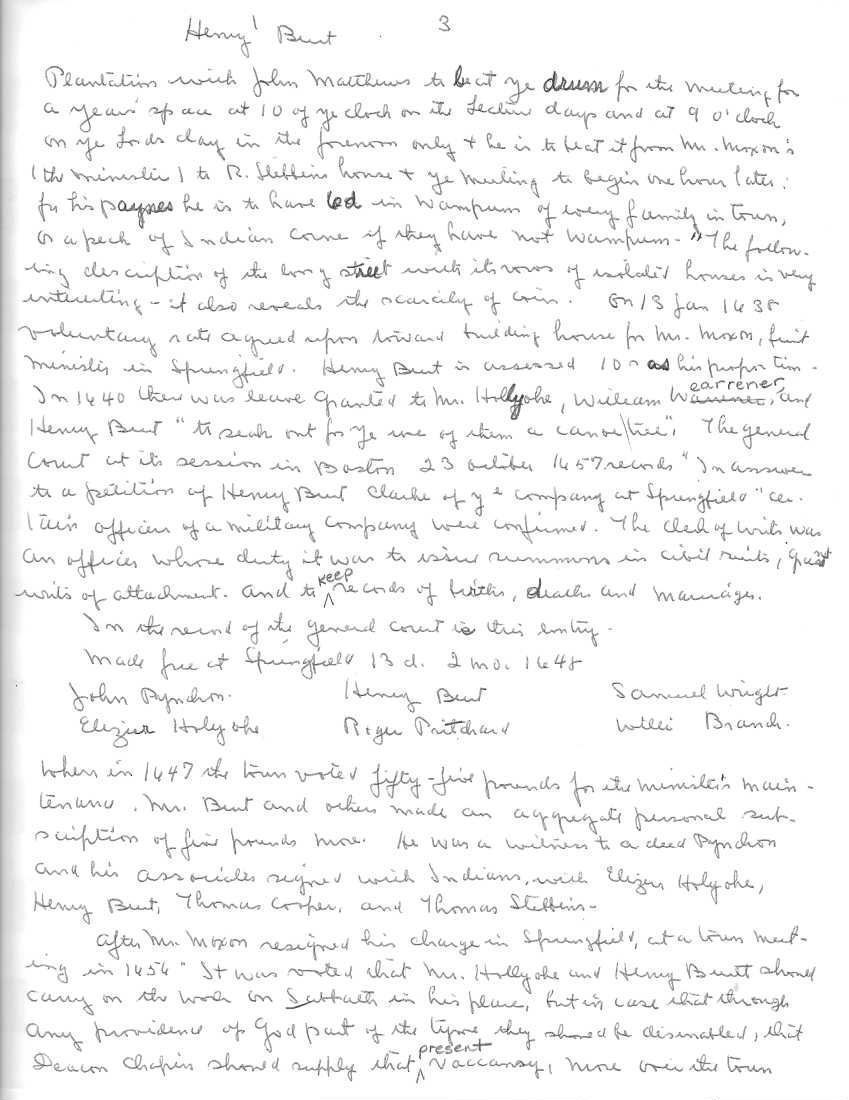 Henry¹ Burt 3
Plantation with John Matthews to beat ye drum for the meeting for
a years' space at 10 of ye clock on the Lecture days and at 9 o'clock
on ye Lords day in the forenoon only & he is to beat it from Mr. Moxon's
(the minister) to R. Stebbins house & ye meeting to begin one hour later:
for his paynes he is to have 6d in wampum of every family in town,
or a peck of Indian corne if they have not wampum-" The follow-
ing description of the long street with its rows of isolated houses is very
interesting - it also reveals the scarcity of coin. On 13 Jan 1638
voluntary rate agreed upon toward building house for Mr. Moxon, first
minister in Springfield. Henry Burt is assessed 10 as his proportion.
In 1640 there was leave granted to Mr. Hollyoke, William Warrener, and
Henry Burt "to seak out for ye use of them a canoe tree". The general
Court at its session in Boston 23 october 1657 records "In answer
to a petition of Henry Burt Clarke of ye company at Springfield" cer-
tain officers of a military company were confirmed. The clerk of writs was
an officer whose duty it was to issue summons in civil suits, grant
writs of attachment. and to keep records of births, deaths and marriages.
In the record of the general court is this entry-
Made free at Springfield 13 d. 2 mo. 1648
John Pynchon. Henry Burt Samuel Wright
Elizur Holyoke Roger Pritchard Willi Branch.
When in 1647 the town voted fifty-five pounds for the minister's main-
tenance. Mr. Burt and others made an aggregate personal sub-
scription of five pounds more. He was a witness to a deed Pynchon
and his associates signed with Indians, with Elizur Holyoke,
Henry Burt, Thomas Cooper, and Thomas Stebbins-
After Mr. Moxon resigned his charge in Springfield, at a town meet-
ing in 1656 "It was voted that Mr. Hollyoke and Henry Burtt should
carry on the work on Sabbath in his place, but in case that through
any providence of God part of the tyme they should be disinabled, that
Deacon Chapin should supply that present vaccansy, more over the town